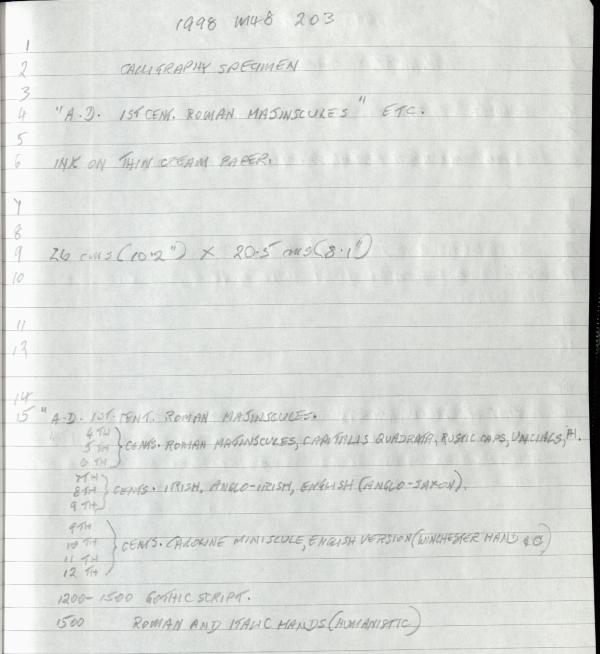 1998 M48 203
1
2 CALLIGRAPHY SPECIMEN
3
4 "A.D. 1ST CENT. ROMAN MAJINSCULES" ETC.
5
6 INK ON THIN CREAM PAPER.
7
8
9 26 cms (10.2") X 20.5 cms (8.1")
10
11
12
14
15 "A.D. 1ST. CENT. ROMAN MAJINSCULES.
4 TH
5 TH } CENTS. ROMAN MAJINSCULES, CAPITALIS QUADRATA, RUSTIC CAPS, UNCIALS,
6 TH
7TH
8TH } CENTS. IRISH, ANGLO-IRISH, ENGLISH (ANGLO-SAXON).
9TH
9TH
10 TH } CENTS. CAROLINE MINISCULE, ENGLISH VERSION (WINCHESTER HAND &C)
11 TH
12 TH
1200-1500 GOTHIC SCRIPT.
1500 ROMAN AND ITALIC HANDS (HUMANISTIC)